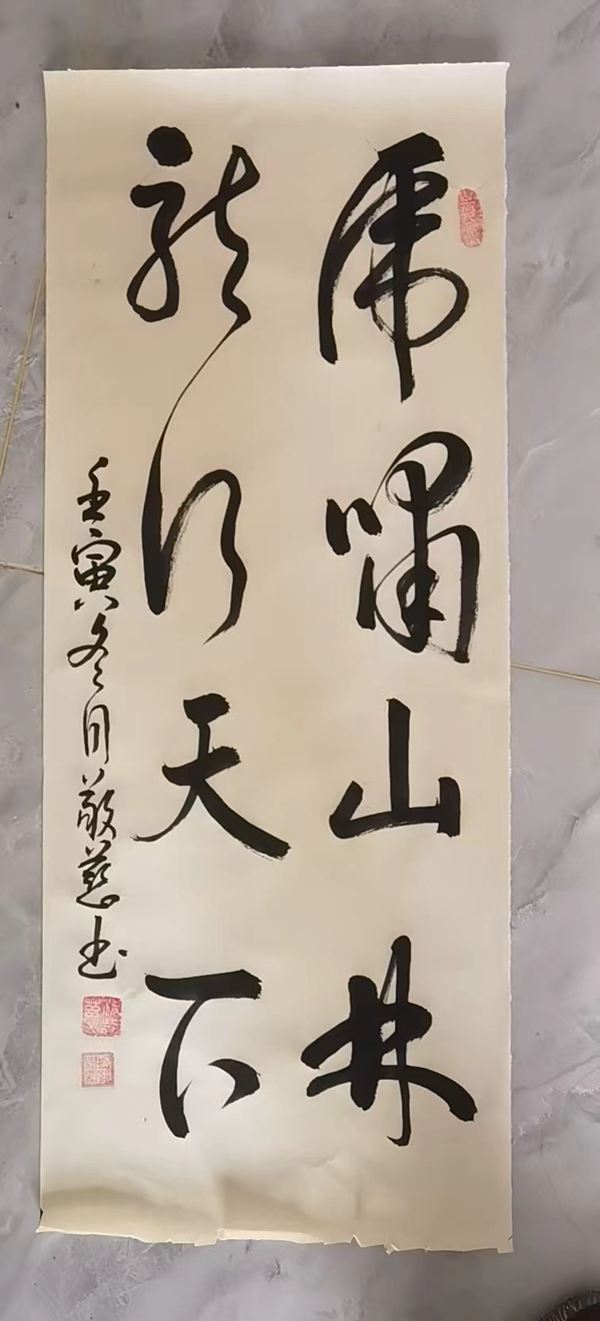 虎啸山林
龙行天下
壬寅冬月敬慈书